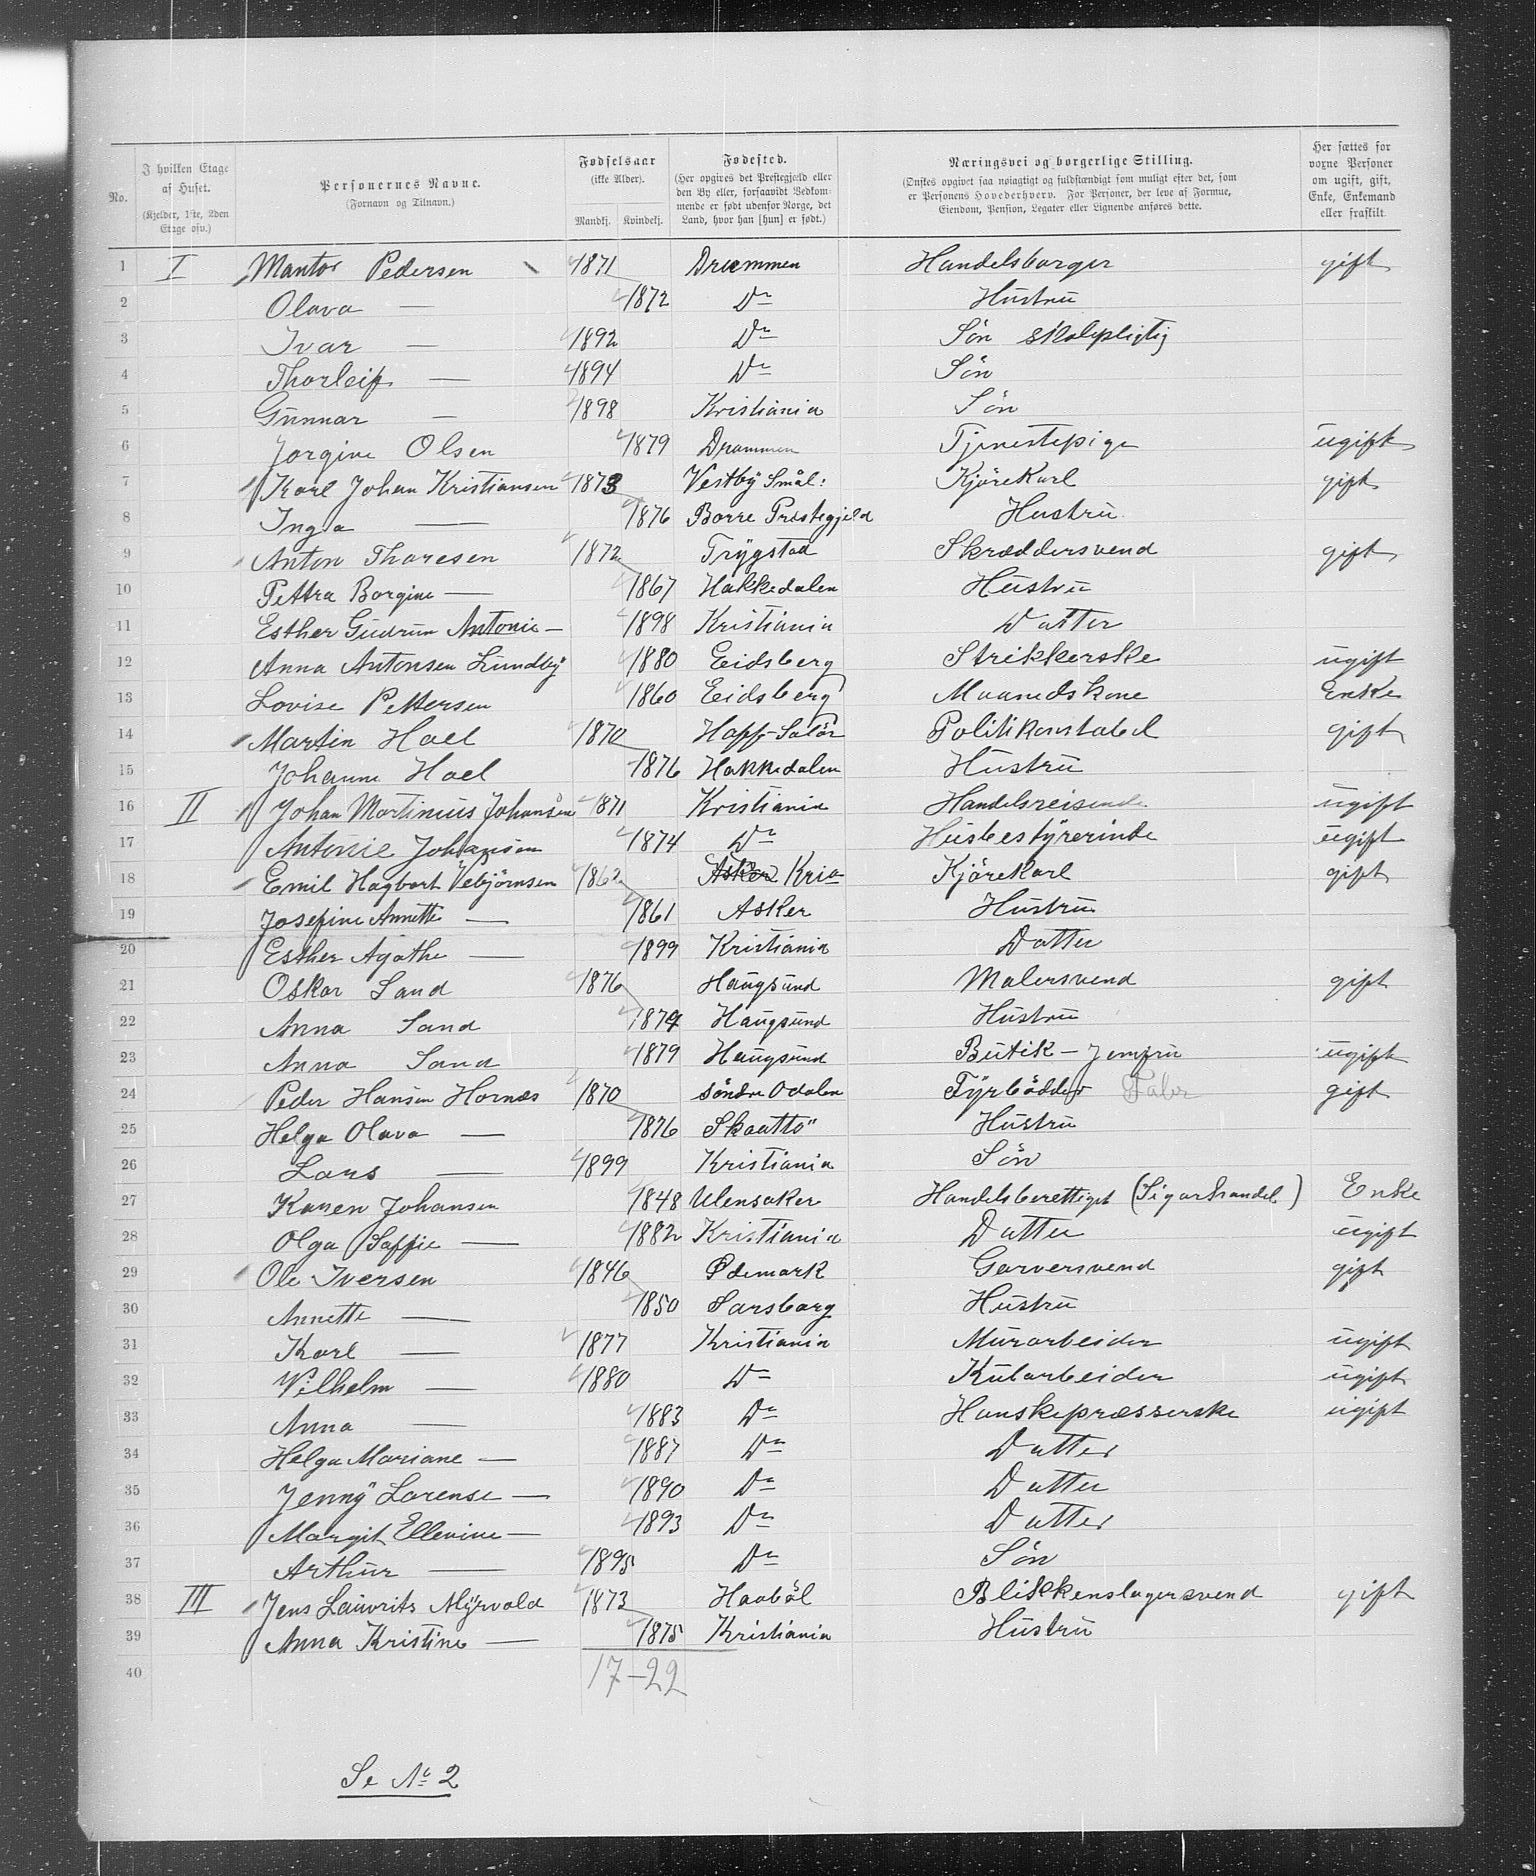 No.
I hvilken Etage af Huset.
(Kjelder, 1ste, 2den Etage osv.)
Personernes Navne.
(Fornavn og Tilnavn.)
Fødselsaar
(ikke Alder).
Mandkj. Kvindekj.
Fødested.
(Her opgives det Prestegjæld eller
den By eller, forsaavidt Vedkom-
mende er født udenfor Norge, det
Land, hvor han [hun] er født.)
Næringsvei og borgerlige Stilling.
(Ønskes opgivet saa nøiagtigt og fuldstændigt som muligt efter det, som
er Personens Hovederhverv. For Personer, der leve af Formue,
Eiendom, Pension, Legater eller Lignende anføres dette.
Her sættes for
voxne Personer
om ugift, gift,
Enke, Enkemand
eller fraskilt.
1 I Mantor Pedersen 1871 Drammen Handelsborger gift
2 Olava — 1872 Do Hustru
3 Ivar — 1892 Do Søn skolepligtig
4 Thorleif — 1894 Do Søn
5 Gunnar — 1898 Kristiania Søn
6 Jorgine Olsen 1879 Drammen Tjenestepige ugift
7 Karl Johan Kristiansen 1873 Vestby Smål: Kjørekarl gift
8 Inga — 1876 Borre Præstegjeld Hustru
9 Anton Thoresen 1872 Trygstad Skræddersvend gift
10 Pettra Borgine — 1867 Hakkedalen Hustru
11 Esther Gudrun Antonie — 1898 Kristiania Datter
12 Anna Antonsen Lundby 1880 Eidsberg Strikkerske ugift
13 Lovise Pettersen 1860 Eidsberg Maanedskone Enke
14 Martin Hoel 1870 Hoff-Solør Politikonstabel gift
15 Johanne Hoel 1876 Hakkedalen Hustru
16 II Johan Martinius Johansen 1871 Kristiania Handelsreisende ugift
17 Antonie Johansen 1874 Do Husbestyrerinde ugift
18 Emil Hagbart Vebjørnsen 1862 Asker Kria Kjørekarl gift
19 Josefine Annette — 1861 Asker Hustru
20 Esther Agathe — 1899 Kristiania Datter
21 Oskar Sand 1876 Haugsund Malersvend gift
22 Anna Sand 1874 Haugsund Hustru
23 Anna Sand 1879 Haugsund Butik-Jomfru ugift
24 Peder Hansen Hornæs 1870 Søndre Odalen Fyrbødder gift
25 Helga Olava — 1876 Skaatto" Hustru
26 Lars — 1899 Kristiania Søn
27 Karen Johansen 1848 Ulensaker Handelsberettiget (Sigarhandel) Enke
28 Olga Saffie — 1882 Kristiania Datter ugift
29 Ole Iversen 1846 Ødemark Garversvend gift
30 Annette — 1850 Sarsborg Hustru
31 Karl — 1877 Kristiania Murarbeider ugift
32 Vilhelm — 1880 Do Kularbeider ugift
33 Anna — 1883 Do Hanskepresserske ugift
34 Helga Mariane — 1887 Do Datter
35 Jenny Lorense — 1890 Do Datter
36 Margit Ellevine — 1893 Do Datter
37 Arthur — 1895 Do Søn
38 III Jens Lauvrits Myrvold 1873 Haabøl Blikkenslagersvend gift
39 Anna Kristine — 1875 Kristiania Hustru
40 17-22
Se No 2